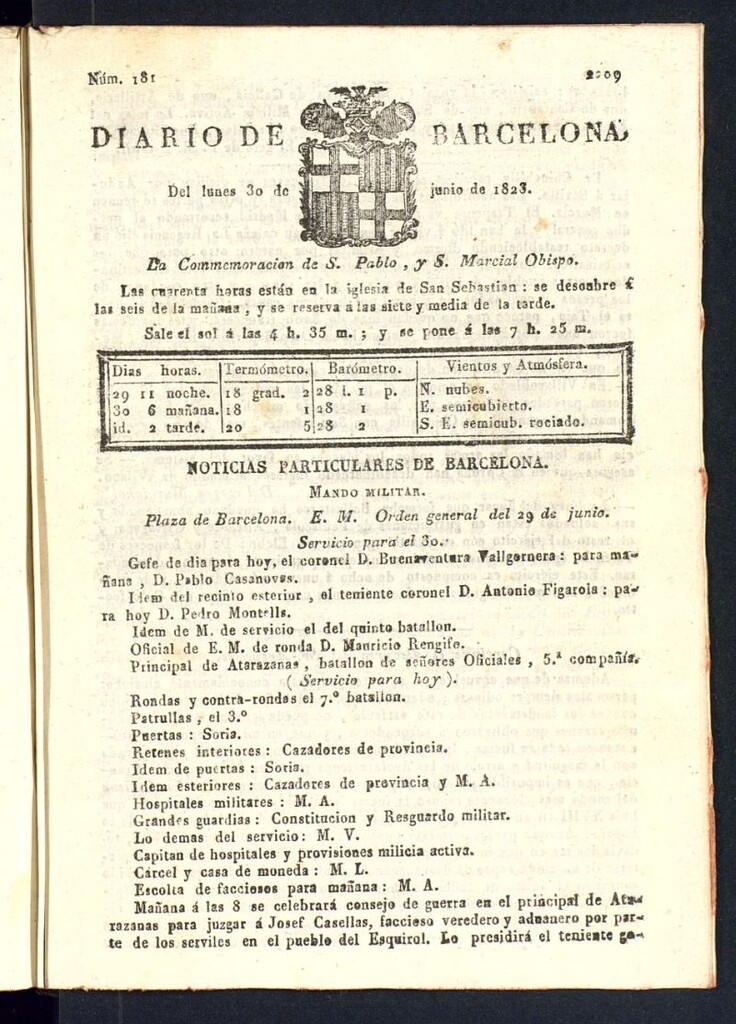 Núm. 181
2009
DIARIO DE BARCELONA,
Del lunes 30 de junio de 1823.
La Commemoracion de S. Pablo, y S. Marcial Obispo.
Las cuarenta horas están en la iglesia de San Sebastian: se descubre á
las seis de la mañana, y se reserva a las siete y media de la tarde.
Sale el sol á las 4 h. 35 m.; y se pone á las 7 h. 25 m.
Dias horas. Termómetro. Barómetro. Vientos y Atmósfera.
29 11 noche. 18 grad. 2 28 l. 1 p. N. nubes.
30 6 mañana. 18 1 28 1 E. semicubierto.
id. 2 tarde. 20 5 28 2 S. E. semicub. rociado.
NOTICIAS PARTICULARES DE BARCELONA.
MANDO MILITAR.
Plaza de Barcelona. E. M. Orden general del 29 de junio.
Servicio para el 30.
Gefe de dia para hoy, el coronel D. Buenaventura Vallgornera: para ma-
ñana, D. Pablo Casanovas.
Idem del recinto esterior, el teniente coronel D. Antonio Figarola: pa-
ra hoy D. Pedro Montells.
Idem de M. de servicio el del quinto batallon.
Oficial de E. M. de ronda D. Mauricio Rengifo.
Principal de Atarazanas, batallon de señores Oficiales, 5.ª compañía.
( Servicio para hoy ).
Rondas y contra-rondas el 7.º batallon.
Patrullas, el 3.º
Puertas: Soria.
Retenes interiores: Cazadores de provincia.
Idem de puertas: Soria.
Idem esteriores: Cazadores de provincia y M. A.
Hospitales militares: M. A.
Grandes guardias: Constitucion y Resguardo militar.
Lo demas del servicio: M. V.
Capitan de hospitales y provisiones milicia activa.
Cárcel y casa de moneda: M. L.
Escolta de facciosos para mañana: M. A.
Mañana á las 8 se celebrará consejo de guerra en el principal de Ata-
razanas para juzgar á Josef Casellas, faccioso veredero y aduanero por par-
te de los serviles en el pueblo del Esquirol. Lo presidirá el teniente go-